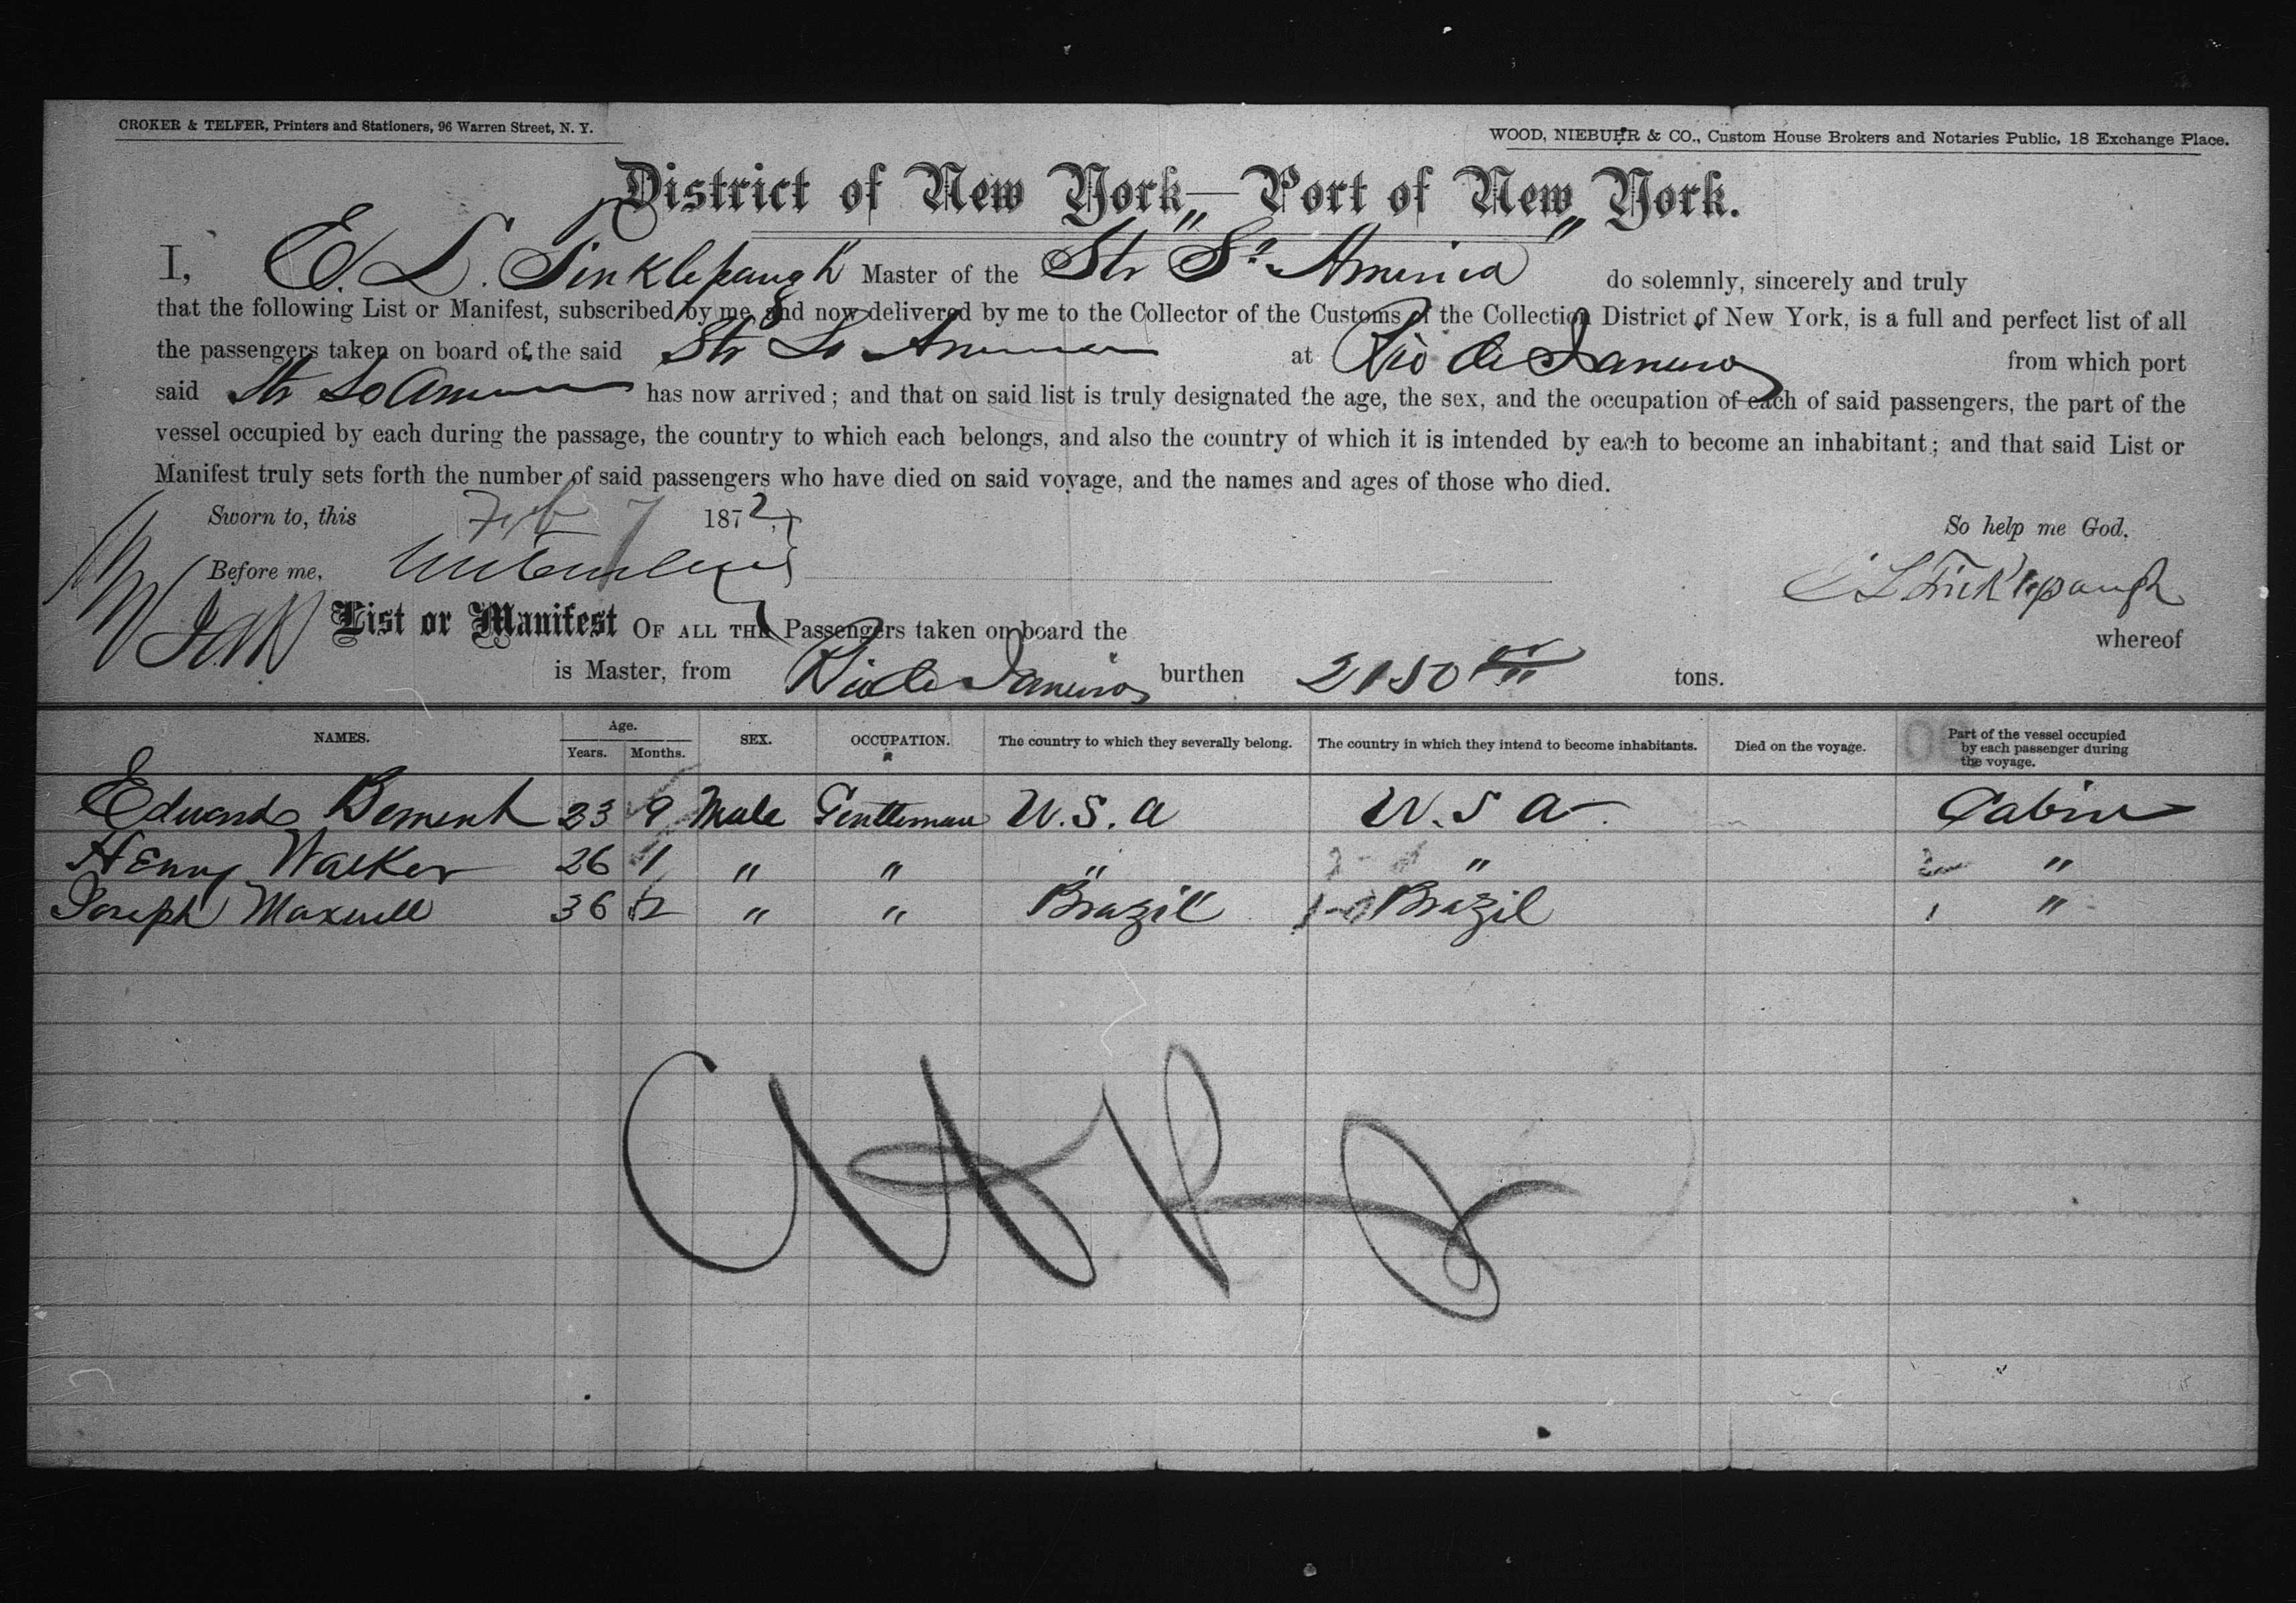 CROKER & TELFER, Printers and Stationers, 96 Warren Street, N. Y.
WOOD, NIEBUHR & CO., Custom House Brokers and Notaries Public, 18 Exchange Place.
District of New York—Port of New York.
I, E. L. Tinklepaugh Master of the Str "So. America" do solemnly, sincerely and truly
that the following List or Manifest, subscribed by me and now delivered by me to the Collector of the Customs of the Collection District of New York, is a full and perfect list of all
the passengers taken on board of the said Str So America at Rio de Janeiro from which port
said Str So America has now arrived; and that on said list is truly designated the age, the sex, and the occupation of each of said passengers, the part of the
vessel occupied by each during the passage, the country to which each belongs, and also the country of which it is intended by each to become an inhabitant; and that said List or
Manifest truly sets forth the number of said passengers who have died on said voyage, and the names and ages of those who died.
Sworn to, this Feb 7 1872, So help me God.
Before me, E L Tinklepaugh
List or Manifest OF ALL THE Passengers taken on board the whereof
is Master, from Rio de Janeiro burthen 2150 tons.
NAMES. Age. Years. Months. SEX. OCCUPATION. The country to which they severally belong. The country in which they intend to become inhabitants. Died on the voyage. Part of the vessel occupied by each passenger during the voyage.
Edward Bement 23 9 Male Gentleman U.S.A U.S A Cabin
Henry Walker 26 1 " " " " "
Joseph Maxwell 36 2 " " Brazil Brazil "